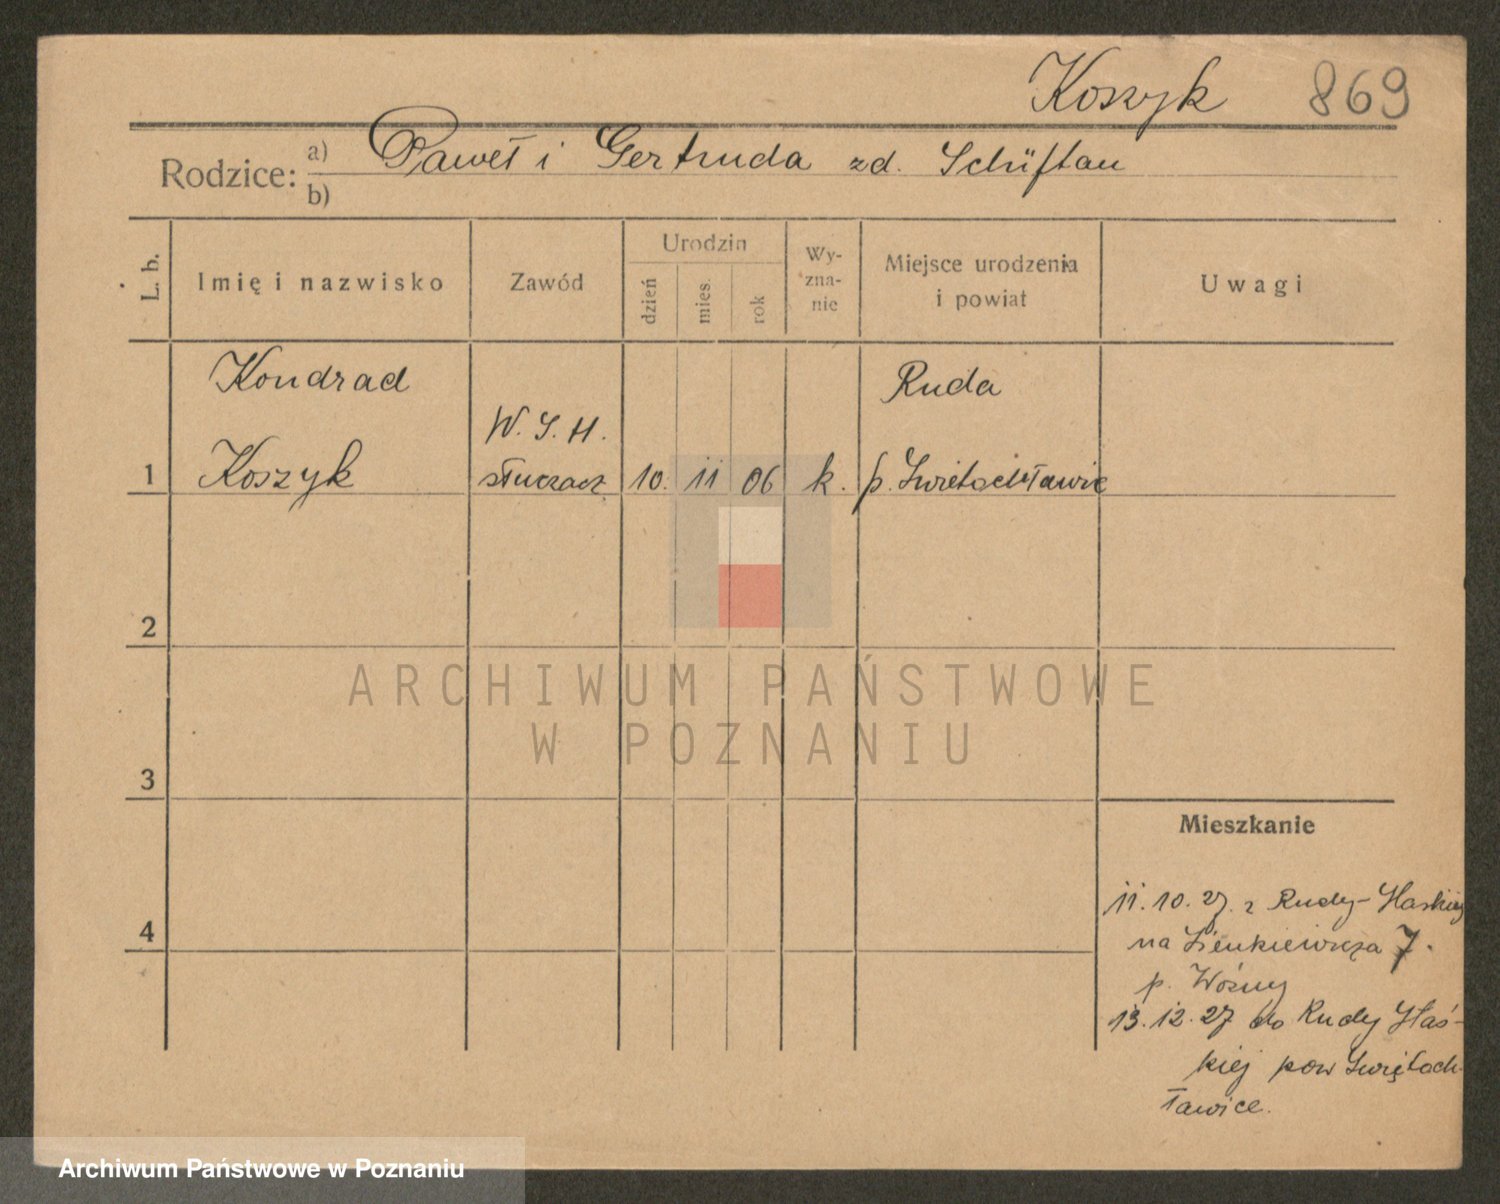 Koszyk 869
Rodzice: a) Paweł i Gertruda zd. Schüftan
b)
L. b. Imię i nazwisko Zawód Urodzin dzień mies. rok Wy-zna-nie Miejsce urodzenia i powiat Uwagi
Kondrad Ruda
W. S. H.
1 Koszyk słuchacz 10. 11 06 k. p. Świetochłowice
2
3
4
Mieszkanie
11. 10. 27. z Rudy-Śląskiej
na Sienkiewicza 7.
p. Woźny
13. 12. 27 do Rudy Ślaś-
kiej pow Świętoch-
łowice.
ARCHIWUM PAŃSTWOWE
W POZNANIU
Archiwum Państwowe w Poznaniu